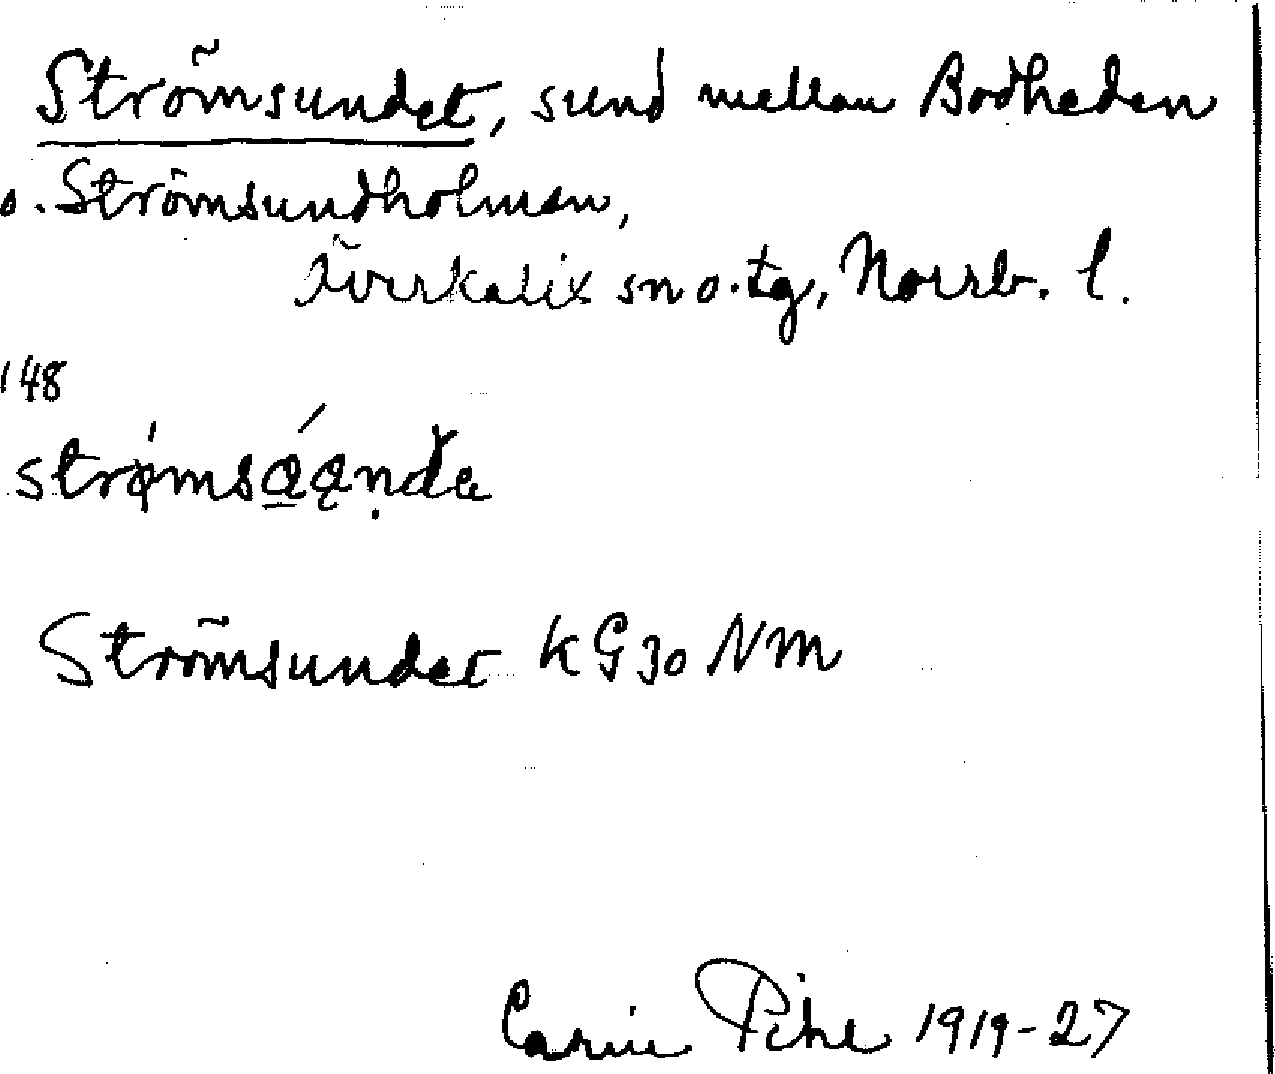 Strömsundet, sund mellan Bodheden
o. Strömsundholmen,
Överkalix sn o. tg, Norrb. l.
148
Strömsundet KG30 NM
Carin Pihl 1919-27